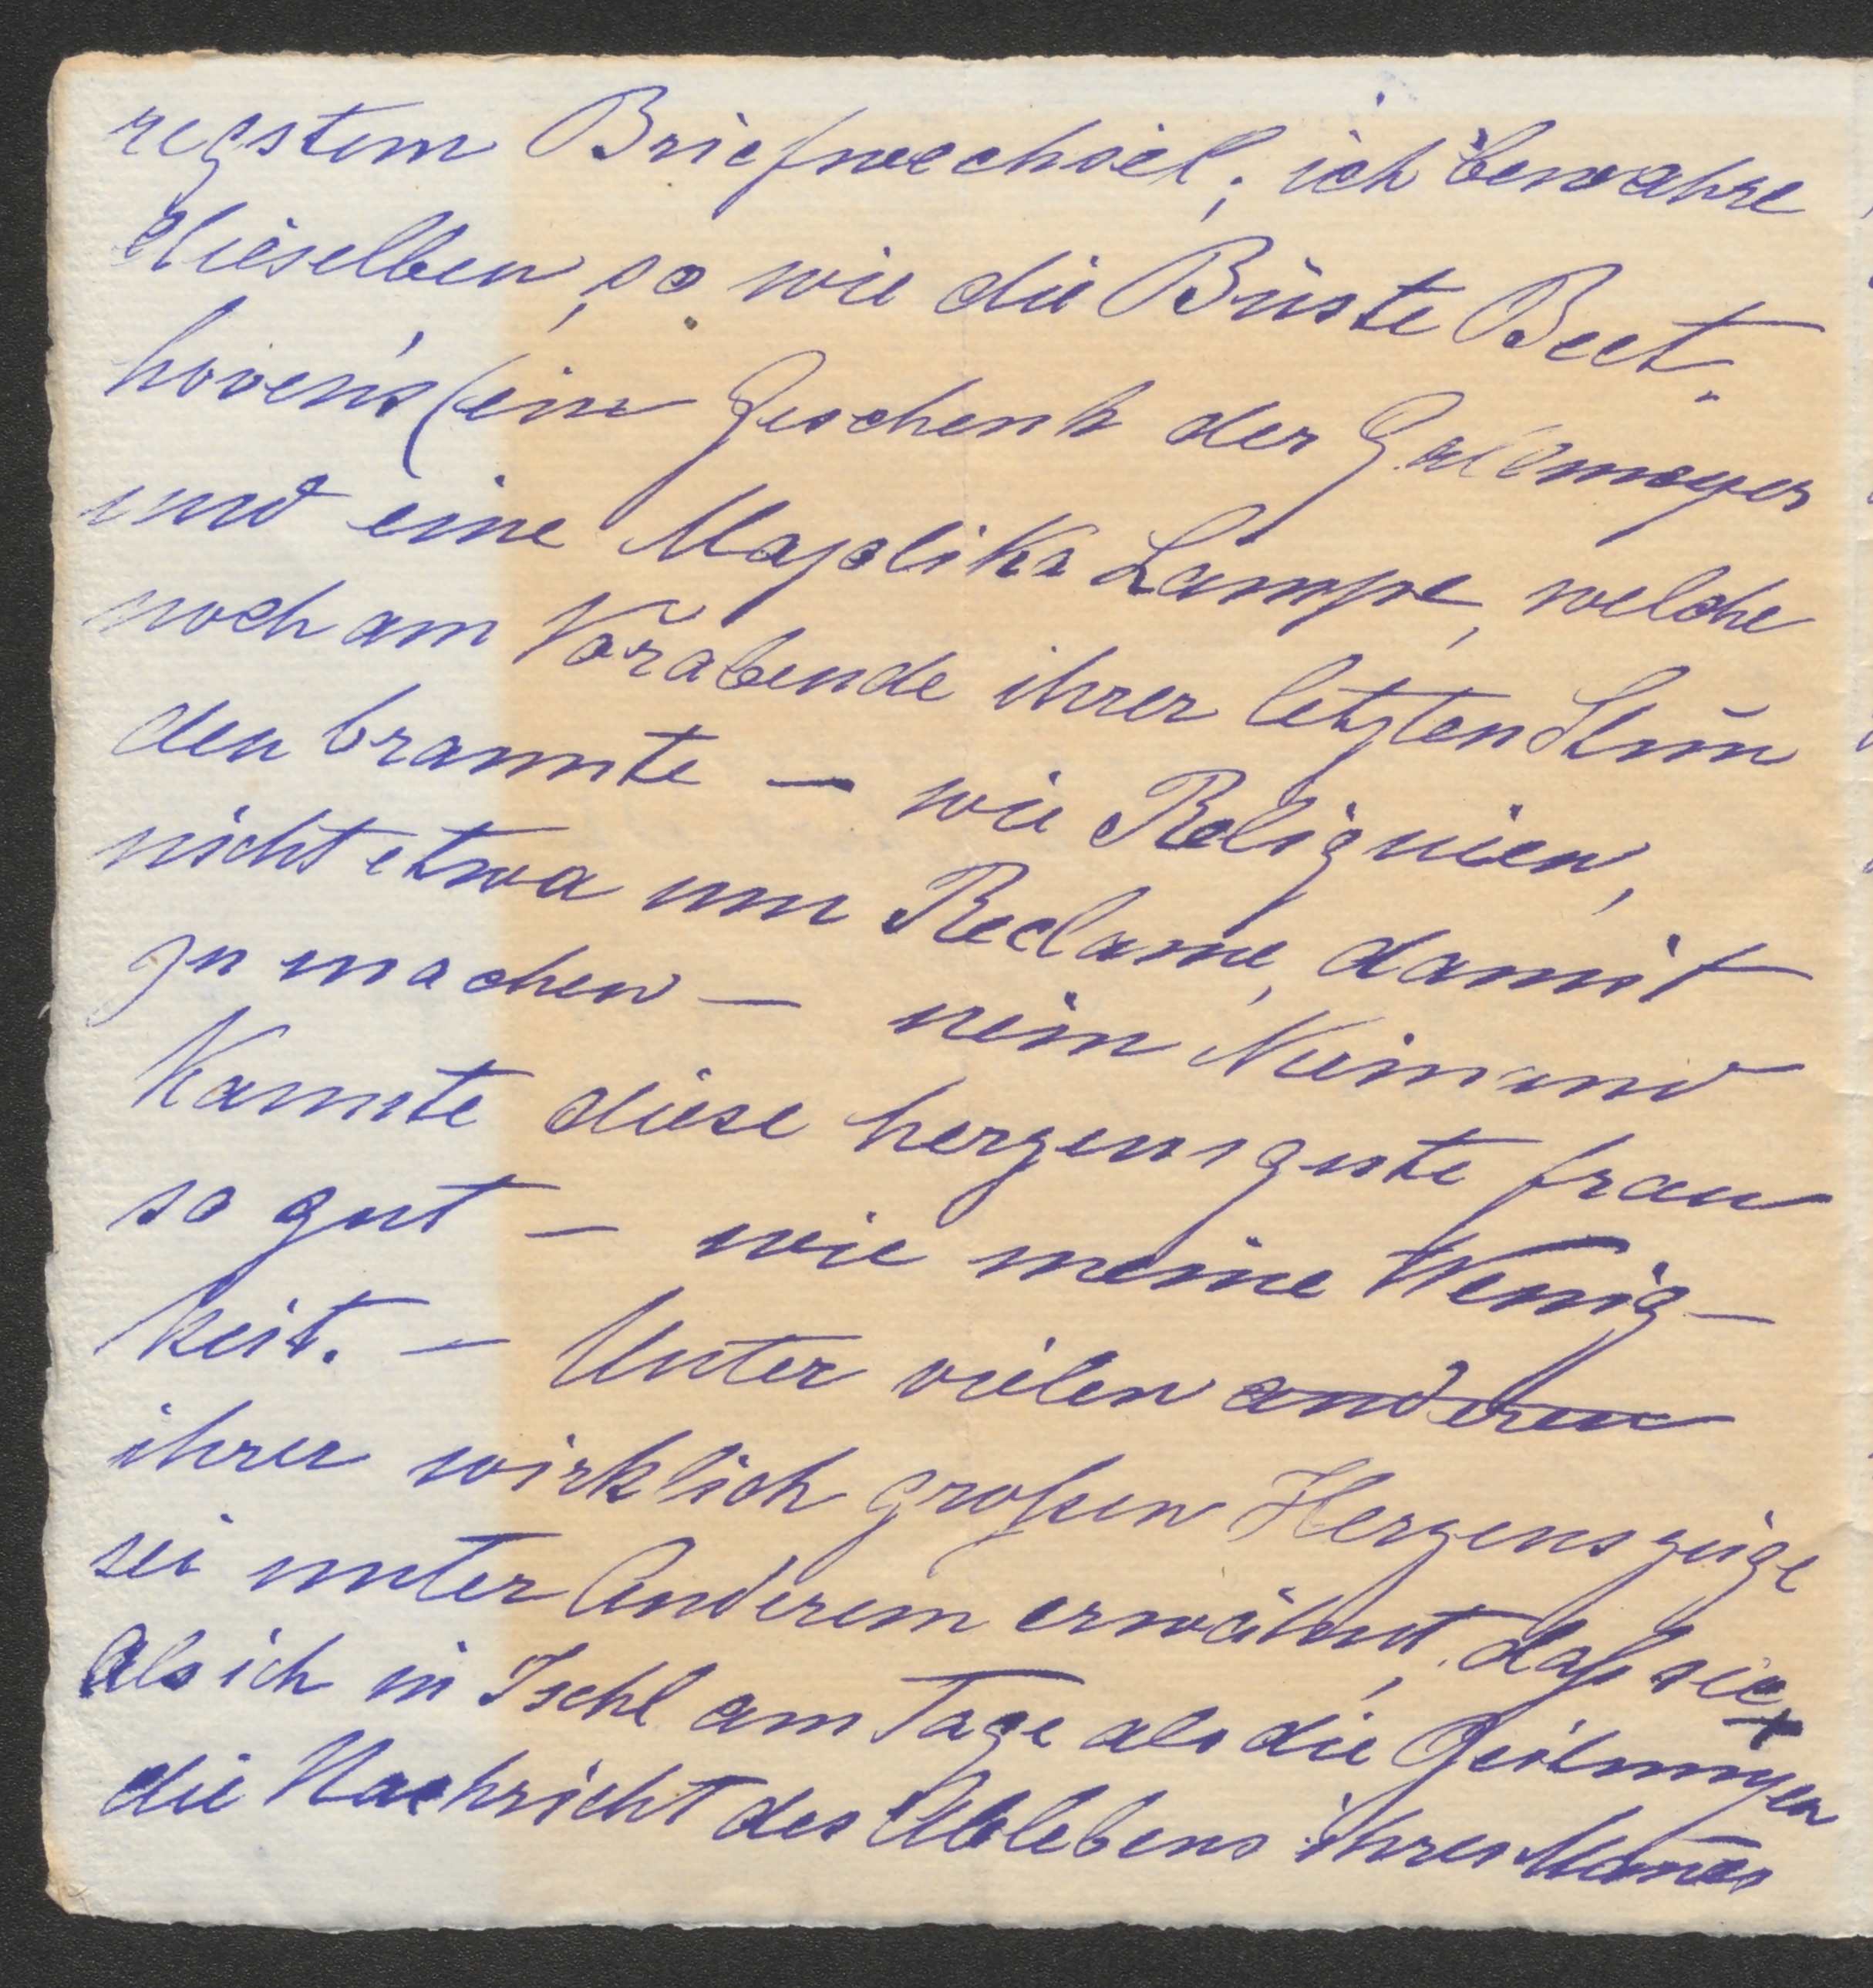 regstem Briefwechsel; ich bewahre
dieselben, so wie die Büste Beet-
hoven's (ein Geschenk der Gallmeyer
und eine Majolika Lampe, welche
noch am Vorabende ihrer letzten Stun
den brannte — wie Reliquien,
nicht etwa um Reclame, damit
zu machen — nein Niemand
kannte diese herzensgute Frau
so gut — wie meine Wenig-
keit. — Unter vielen anderen
ihrer wirklich großen Herzenszüge
sei unter Anderem erwähnt, daß sie
als ich in Ischl am Tage als die Zeitungen
die Nachricht des Ablebens ihres Mannes